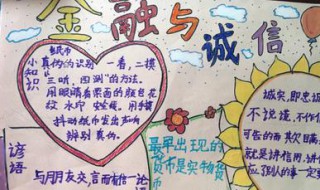 金融与诚信
小知识
纸币
真伪的识别 一看，二摸
三听，四测"的方法。
用眼睛看票面的颜色花
纹 水印 安全线。用手指
抖动纸币发出声响
辨别真伪。
最早出现的
货币是实物货
币
诚实，即忠诚
不说谎，不作
可告的而欺瞒
就是讲信用，讲信
谚语：
与朋友交，言而有信 一论